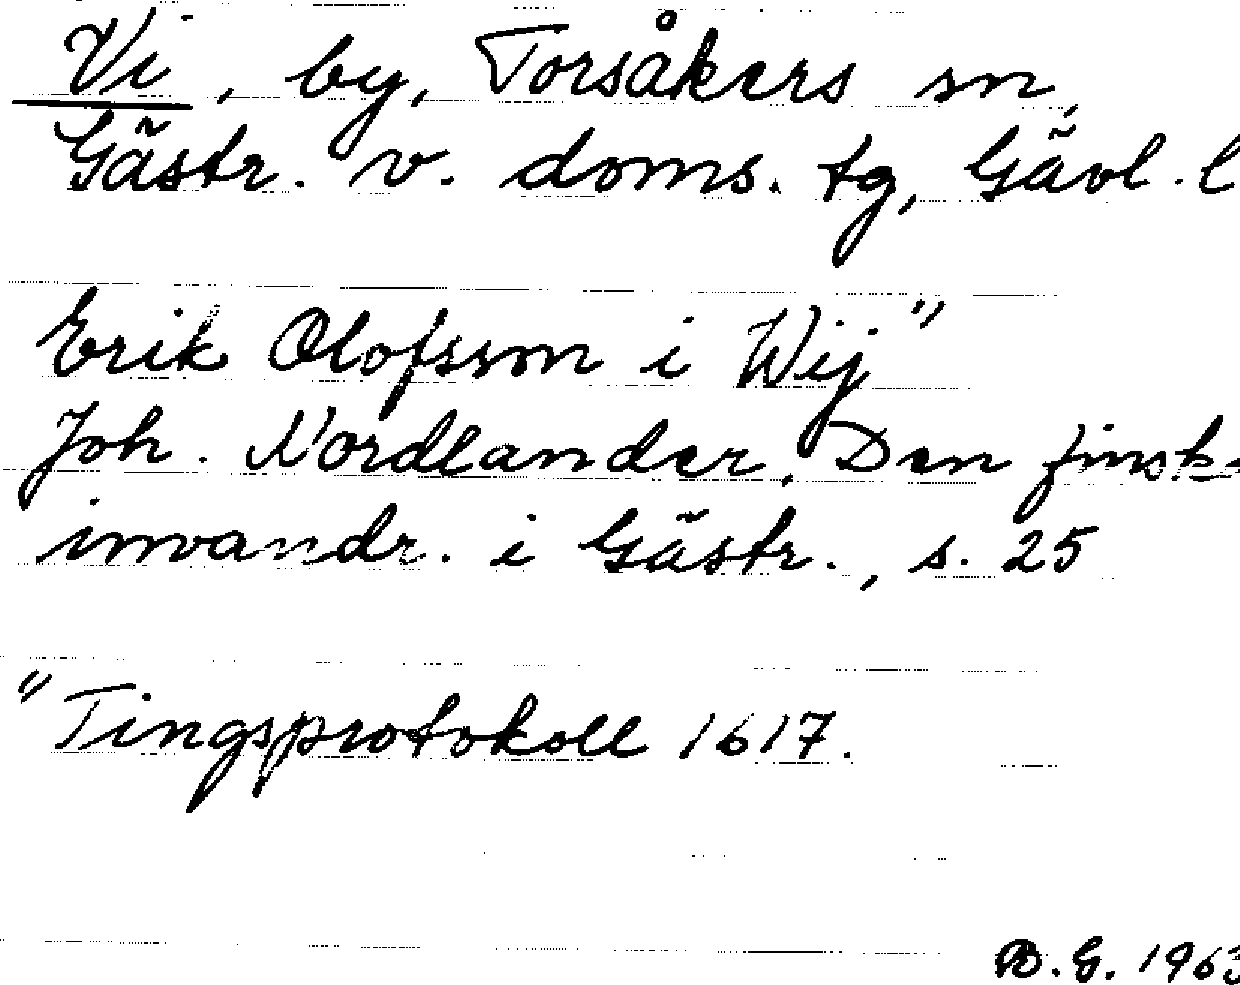 Vi, by, Torsåkers sn,
Gästr. v. doms. tg, Gävl. l
Erik Olofsson i Wij"
Joh. Nordlander, Den finsk
invandr. i Gästr., s. 25
"Tingsprotokoll 1617.
B.G. 1963